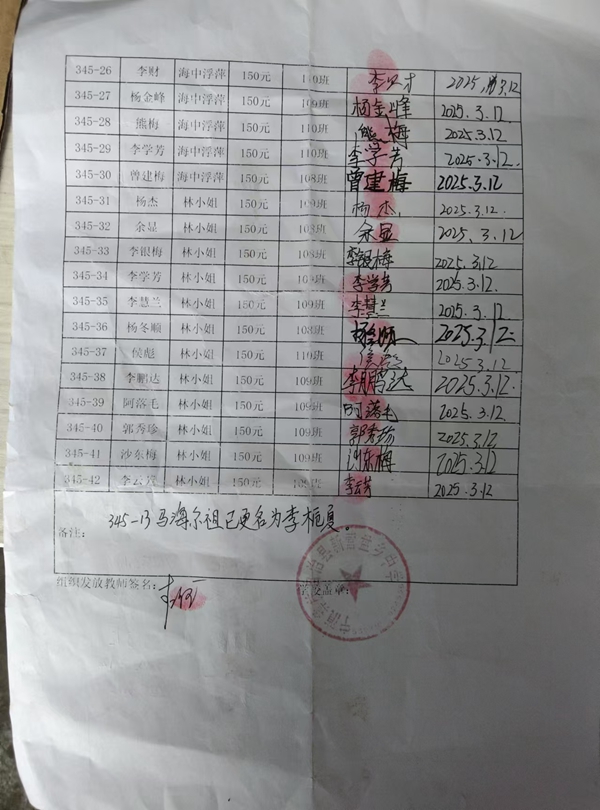 345-26 李财 海中浮萍 150元 110班 2025.3.12
345-27 杨金峰 海中浮萍 150元 109班 杨金峰 2025.3.12
345-28 熊梅 海中浮萍 150元 110班 熊梅 2025.3.12
345-29 李学芳 海中浮萍 150元 110班 李学芳 2025.3.12.
345-30 曾建梅 海中浮萍 150元 108班 曾建梅 2025.3.12
345-31 杨杰 林小姐 150元 109班 杨杰 2025.3.12.
345-32 余显 林小姐 150元 108班 余显 2025.3.12
345-33 李银梅 林小姐 150元 108班 李银梅 2025.3.12
345-34 李学芳 林小姐 150元 108班 李学芳 2025.3.12.
345-35 李慧兰 林小姐 150元 109班 李慧兰 2025.3.12
345-36 杨冬顺 林小姐 150元 108班 2025.3.12
345-37 侯彪 林小姐 150元 110班 侯彪 2025.3.12
345-38 李鹏达 林小姐 150元 109班 李鹏达 2025.3.12.
345-39 阿落毛 林小姐 150元 109班 阿落毛 2025.3.12.
345-40 郭秀珍 林小姐 150元 109班 郭秀珍 2025.3.12
345-41 沙东梅 林小姐 150元 109班 沙东梅 2025.3.12.
345-42 李云 林小姐 150元 109班 2025.3.12
345-13 马海尔祖已更名为李桓夏。
备注:
组织发放教师签名: 盖章: